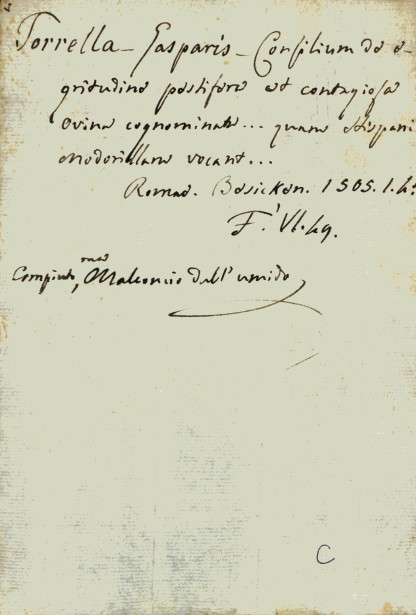 Torrella - Gasparis - Consilium de e-
gritudine pestifera et contagiosa
ovina cognominata... quam Hispani
modorillam vocant...
Romae. Besicken. 1505. 1. 4.
F. VI. 49.
Compiuto, ma Malconcio dall' umido
C